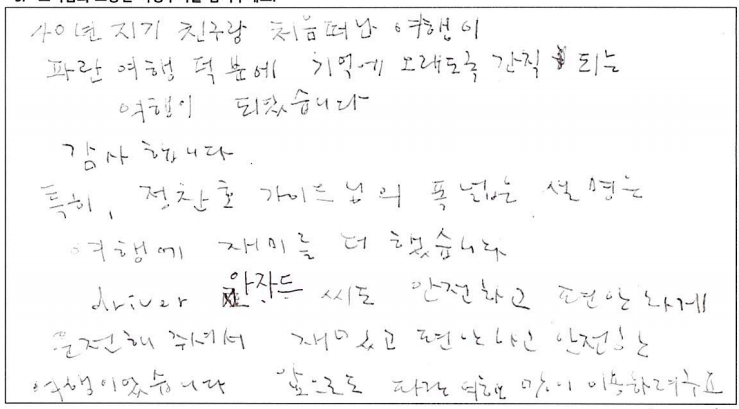 사이년 지기 친구랑 처음떠난 여행이
파란 여행 덕분에 기억에 오래도록 간직 되는
여행이 되었습니다
감사 합니다.
특히, 정찬호 가이드님의 폭넓은 설명은
여행에 재미를 더 했습니다
driver 아자드 씨도 안전하고 편안하게
운전해 주셔서 재밌고 편안하고 안전한
여행이었습니다 앞으로도 파란여행 많이 이용하려구요